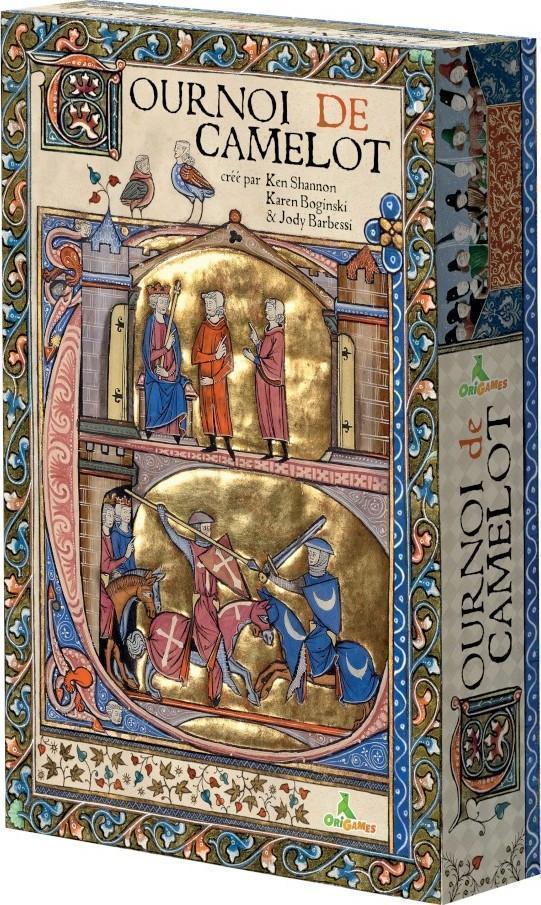 TOURNOI DE
CAMELOT
créé par Ken Shannon
Karen Boginski
& Jody Barbessi
ORIGAMES
ORIGAMES
TOURNOI de
CAMELOT